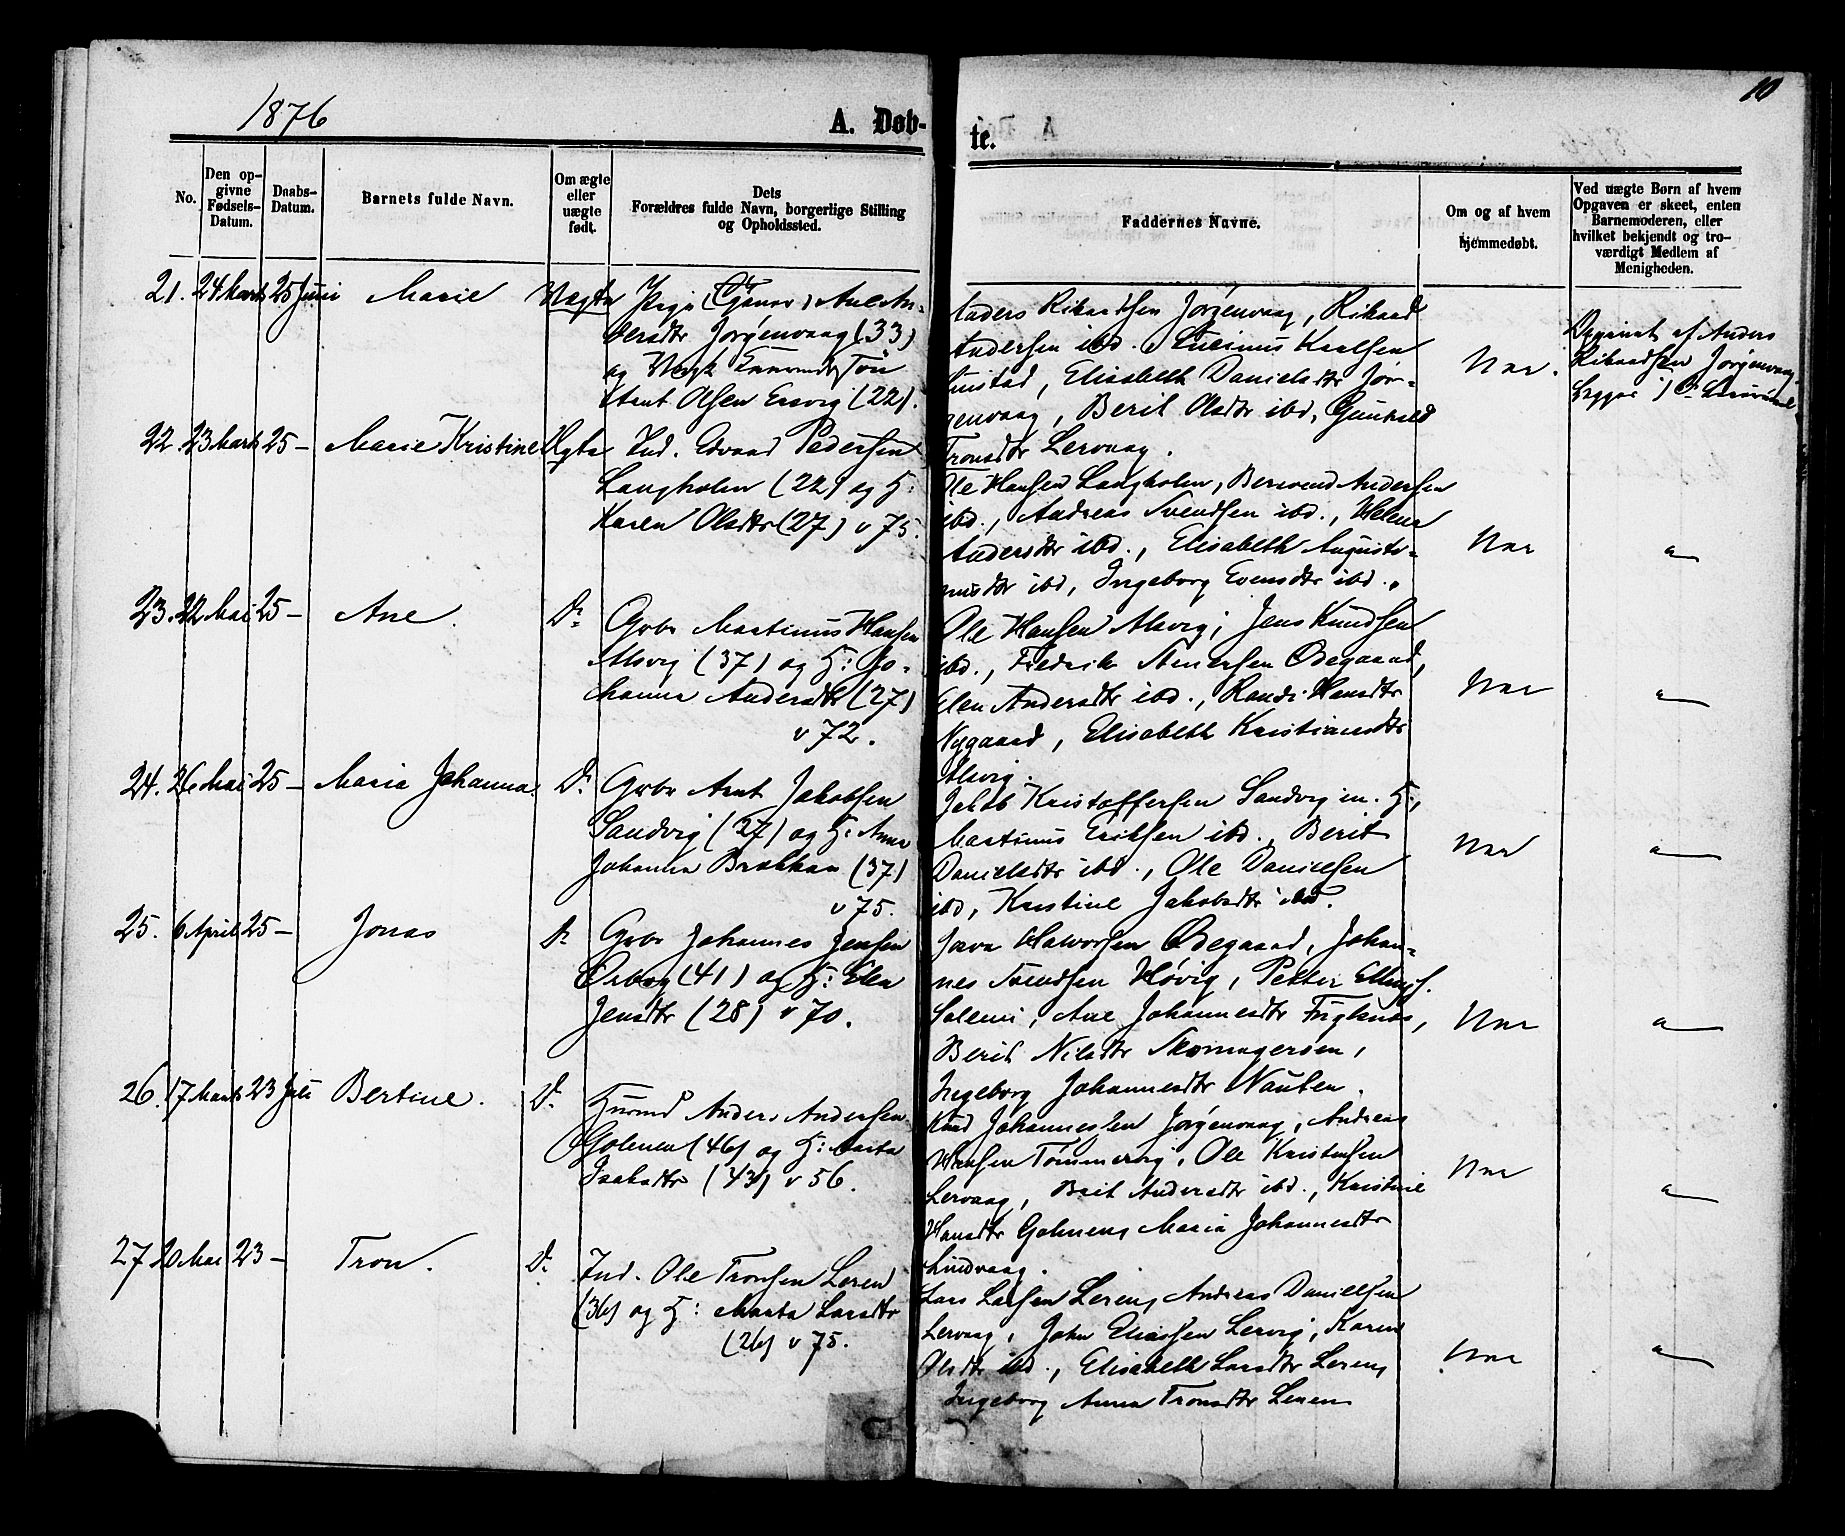 1876
A. Døb-
te.
10
No.
Den op-
givne
Fødsels-
Datum.
Daabs-
Datum.
Barnets fulde Navn.
Om ægte
eller
uægte
født.
Dets
Forældres fulde Navn, borgerlige Stilling
og Opholdssted.
Faddernes Navne.
Om og af hvem
hjemmedøbt.
Ved uægte Børn af hvem
Opgaven er skeet, enten
Barnemoderen, eller
hvilket bekjendt og tro-
værdigt Medlem af
Menigheden.
21. 24 Marts 25 Juni Marie Uægte Pige
dersdtr Jørgenvaag (33)
og Ungk
Arnt Olsen (22).
Anders Rikardsen Jørgenvaag, Rikard
Andersen ibd. Karlsen
Elisabeth Danielsdtr Jør-
genvaag, Berit Olsdtr ibd, Gunhild
Tronsdtr Lervaag.
Nei.
af Anders
Rikardsen Jørgenvaag
22. 23 Marts 25 – Marie Kristine Ægte Ind. Edvard Pedersen
Langholen (22) og H:
Karen Olsdtr (27) v 75.
Ole Hansen Langholen, Andersen
ibd., Andreas Svendsen ibd., Helena
Andersdtr ibd., Elisabeth Augusti-
nusdtr ibd, Ingeborg Evensdtr ibd.
Nei
23. 22 Mai 25 – Ane. Do Gbr Martinus Hansen
Alsvig (37) og H: Jo-
hanna Andersdtr (27)
v 72.
Ole Hansen Alsvig, Jens Knudsen
ibd., Fredrik Ødegaard,
Elen Andersdtr ibd., Randi Hansdtr
Nygaard, Elisabeth Kristiansdtr
Alsvig.
Nei
24. 26 Mai 25 – Maria Johanna. Do Gbr Arnt Jakobsen
Sandvig (27) og H: Anne
Johanna (37)
v 75.
Jakob Kristoffersen Sandvig m. H.,
Martinus Eriksen ibd., Berit
Danielsdtr ibd., Ole Danielsen
ibd, Kristine Jakobsdtr ibd.
Nei
25. 6 April 25 – Jonas Do Gbr Johannes Jensen
(41) og H: Elen
Jensdtr (28) v 70.
Halvorsen Ødegaard, Johan-
nes Svendsen Høvig, Petter Ellings.
Solemi, Ane Johannesdtr Fuglenes,
Berit Nilsdtr
Ingeborg Johannesdtr
Nei
26. 17 Marts 23 Juli Bertine. Do Husmd Anders Andersen
Golmen (46) og H: Marta
Isaksdtr (43) v 56.
Knud Johannessen Jørgenvaag, Andreas
Hansen Tømmervig, Ole Kristensen
Lervaag, Berit Andersdtr ibd., Kristine
Hansdtr Golmeng Maria Johannesdtr
Lindvaag.
Nei
27 20 Mai 23 – Tron. Do Ind. Ole Tronsen Leren
(36) og H: Marta Larsdtr
(26) v 75.
Lars Larsen Lereng Andreas Danielsen
Lervaag, John Eliassen Lervig, Karen
Olsdtr ibd., Elisabeth Larsdtr Lereng
Ingeborg Anna Tronsdtr Leren
Nei